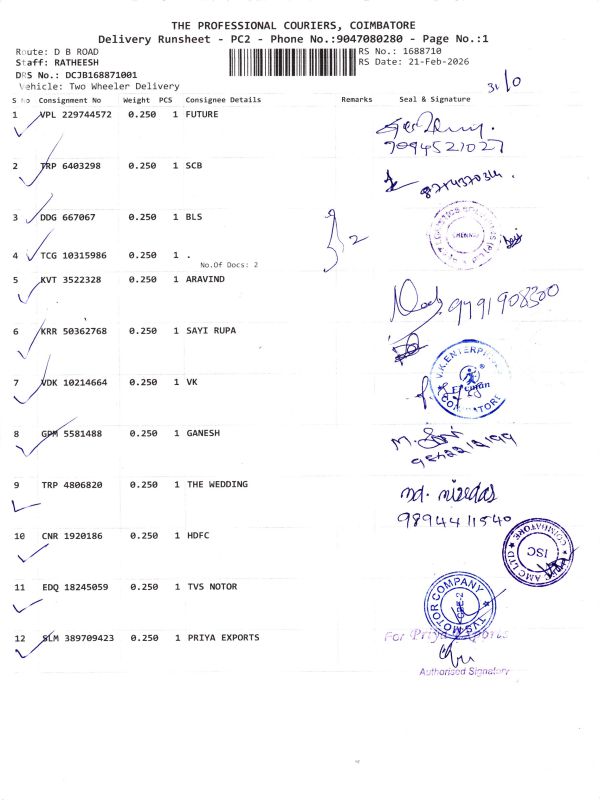 THE PROFESSIONAL COURIERS, COIMBATORE
Delivery Runsheet - PC2 - Phone No.:9047080280 - Page No.:1
Route: D B ROAD
RS No.: 1688710
Staff: RATHEESH
RS Date: 21-Feb-2026
DRS No.: DCJB168871001
Vehicle: Two Wheeler Delivery
S No Consignment No Weight PCS Consignee Details Remarks Seal & Signature
1 VPL 229744572 0.250 1 FUTURE
9094521027
2 TRP 6403298 0.250 1 SCB
3 DDG 667067 0.250 1 BLS
CHENNAI
2
4 TCG 10315986 0.250 1 .
No.Of Docs: 2
5 KVT 3522328 0.250 1 ARAVIND
9791908300
6 KRR 50362768 0.250 1 SAYI RUPA
7 VDK 10214664 0.250 1 VK
V.K.ENTERPRISES
COIMBATORE
8 GPM 5581488 0.250 1 GANESH
9 TRP 4806820 0.250 1 THE WEDDING
9894411540
10 CNR 1920186 0.250 1 HDFC
COIMBATORE
ISC
AMC LTD
11 EDQ 18245059 0.250 1 TVS NOTOR
TVS MOTOR COMPANY
12 SLM 389709423 0.250 1 PRIYA EXPORTS
For Priya Exports
Authorised Signatory